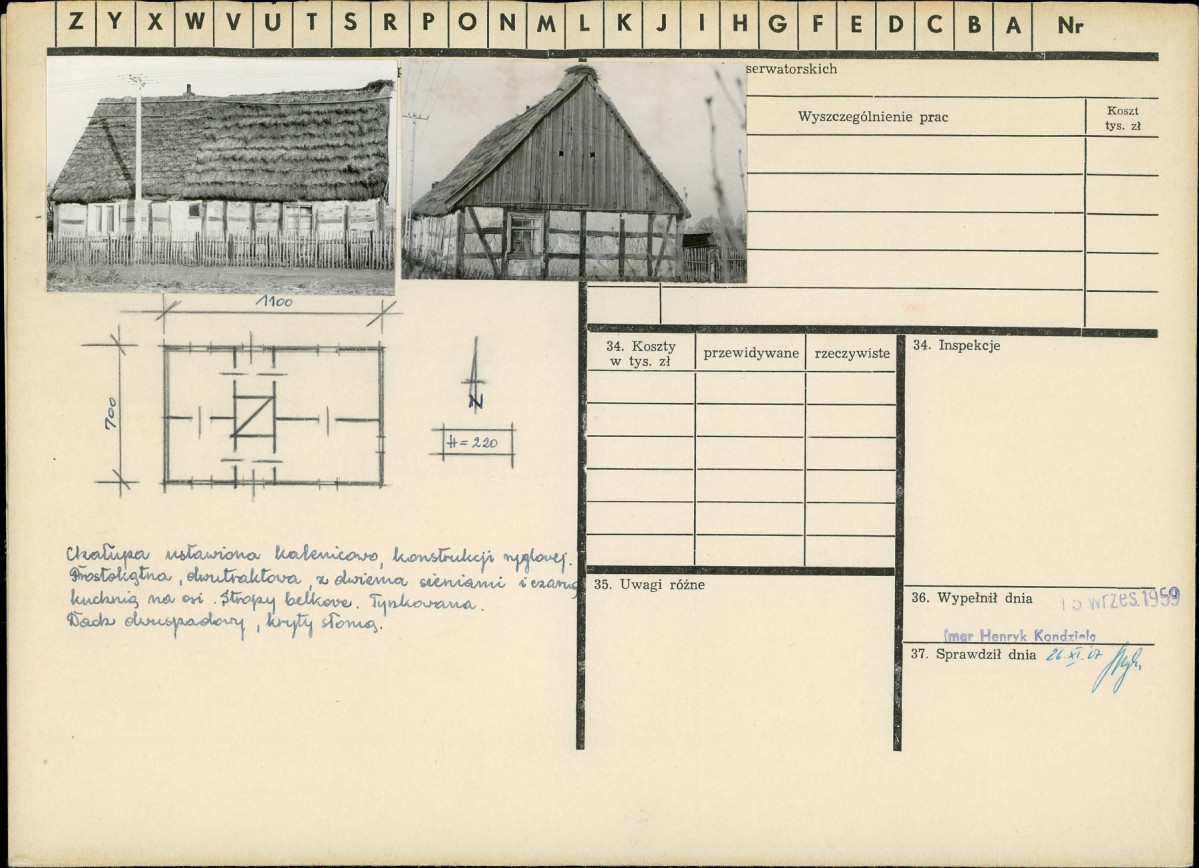 Z Y X W V U T S R P O N M L K J I H G F E D C B A Nr
serwatorskich
Wyszczególnienie prac
Koszt
tys. zł
1100
700
N
H = 220
34. Koszty
w tys. zł
przewidywane
rzeczywiste
34. Inspekcje
Chałupa ustawiona kalenicowo, konstrukcji ryglowej.
Prostokątna, dwutraktowa, z dwiema sieniami i czarną
kuchnią na osi. Stropy belkowe. Tynkowana.
Dach dwuspadowy, kryty słomą.
35. Uwagi różne
36. Wypełnił dnia wrzes. 1959
mgr Henryk Kondziela
37. Sprawdził dnia 26.XI.67